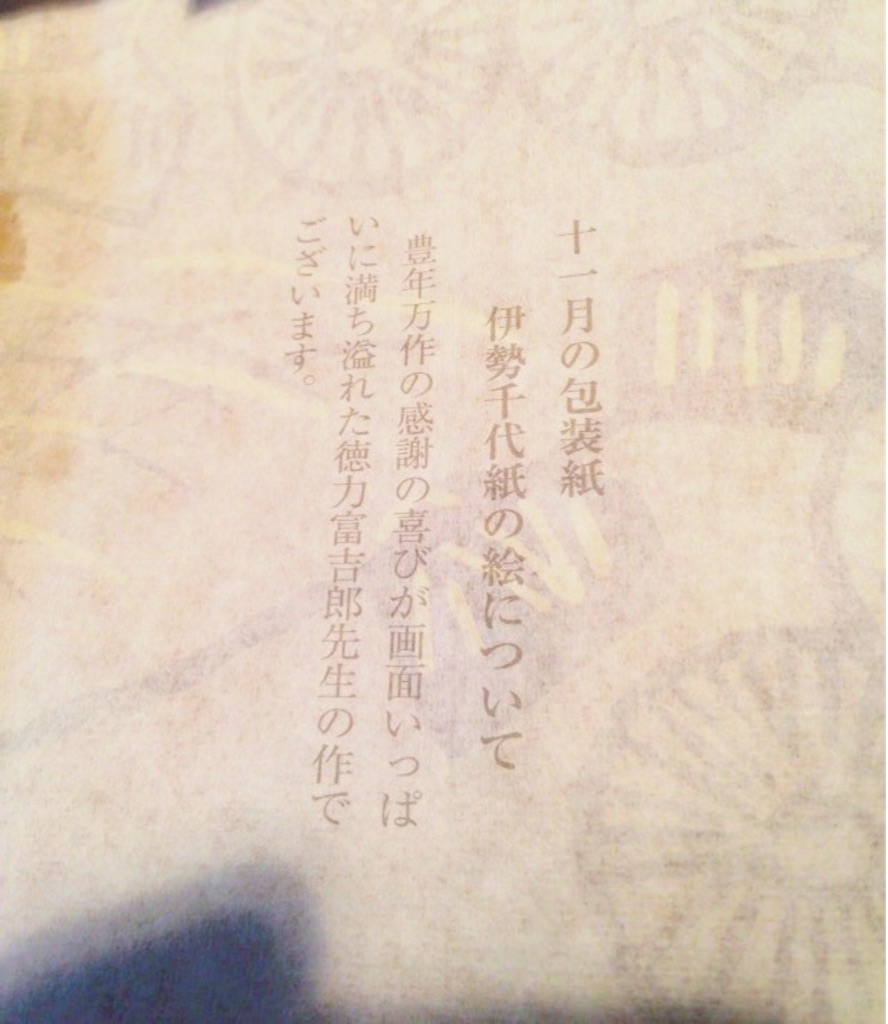 十一月の包装紙
伊勢千代紙の絵について
豊年万作の感謝の喜びが画面いっぱ
いに満ち溢れた徳力富吉郎先生の作で
ございます。